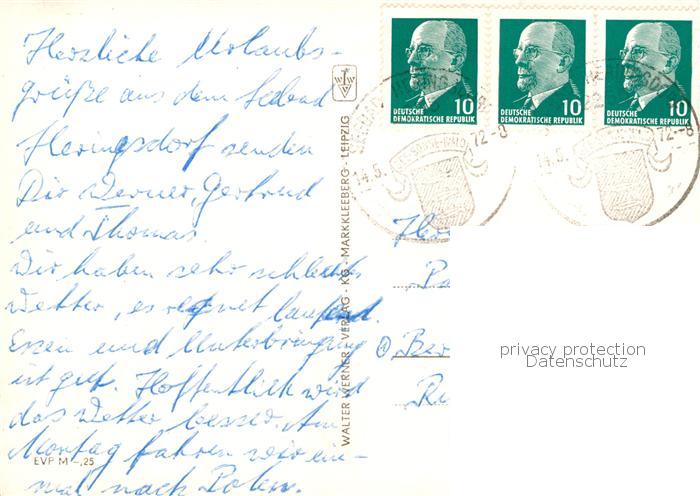 Herzliche Urlaubs-
grüße aus dem Seebad
Heringsdorf senden
Dir Werner, Gertrud
und Thomas.
Wir haben sehr schlechtes
Wetter, es regnet laufend.
Essen und Unterbringung
ist gut. Hoffentlich wird
das Wetter besser. Am
Montag fahren wir ein-
mal nach Polen.
EVP M -,25
WALTER WERNER - VERLAG - KG - MARKKLEEBERG - LEIPZIG
10 10 10
DEUTSCHE DEUTSCHE DEUTSCHE
DEMOKRATISCHE REPUBLIK DEMOKRATISCHE REPUBLIK DEMOKRATISCHE REPUBLIK
14.5. 72-8 14.5. 72-8
privacy protection
Datenschutz